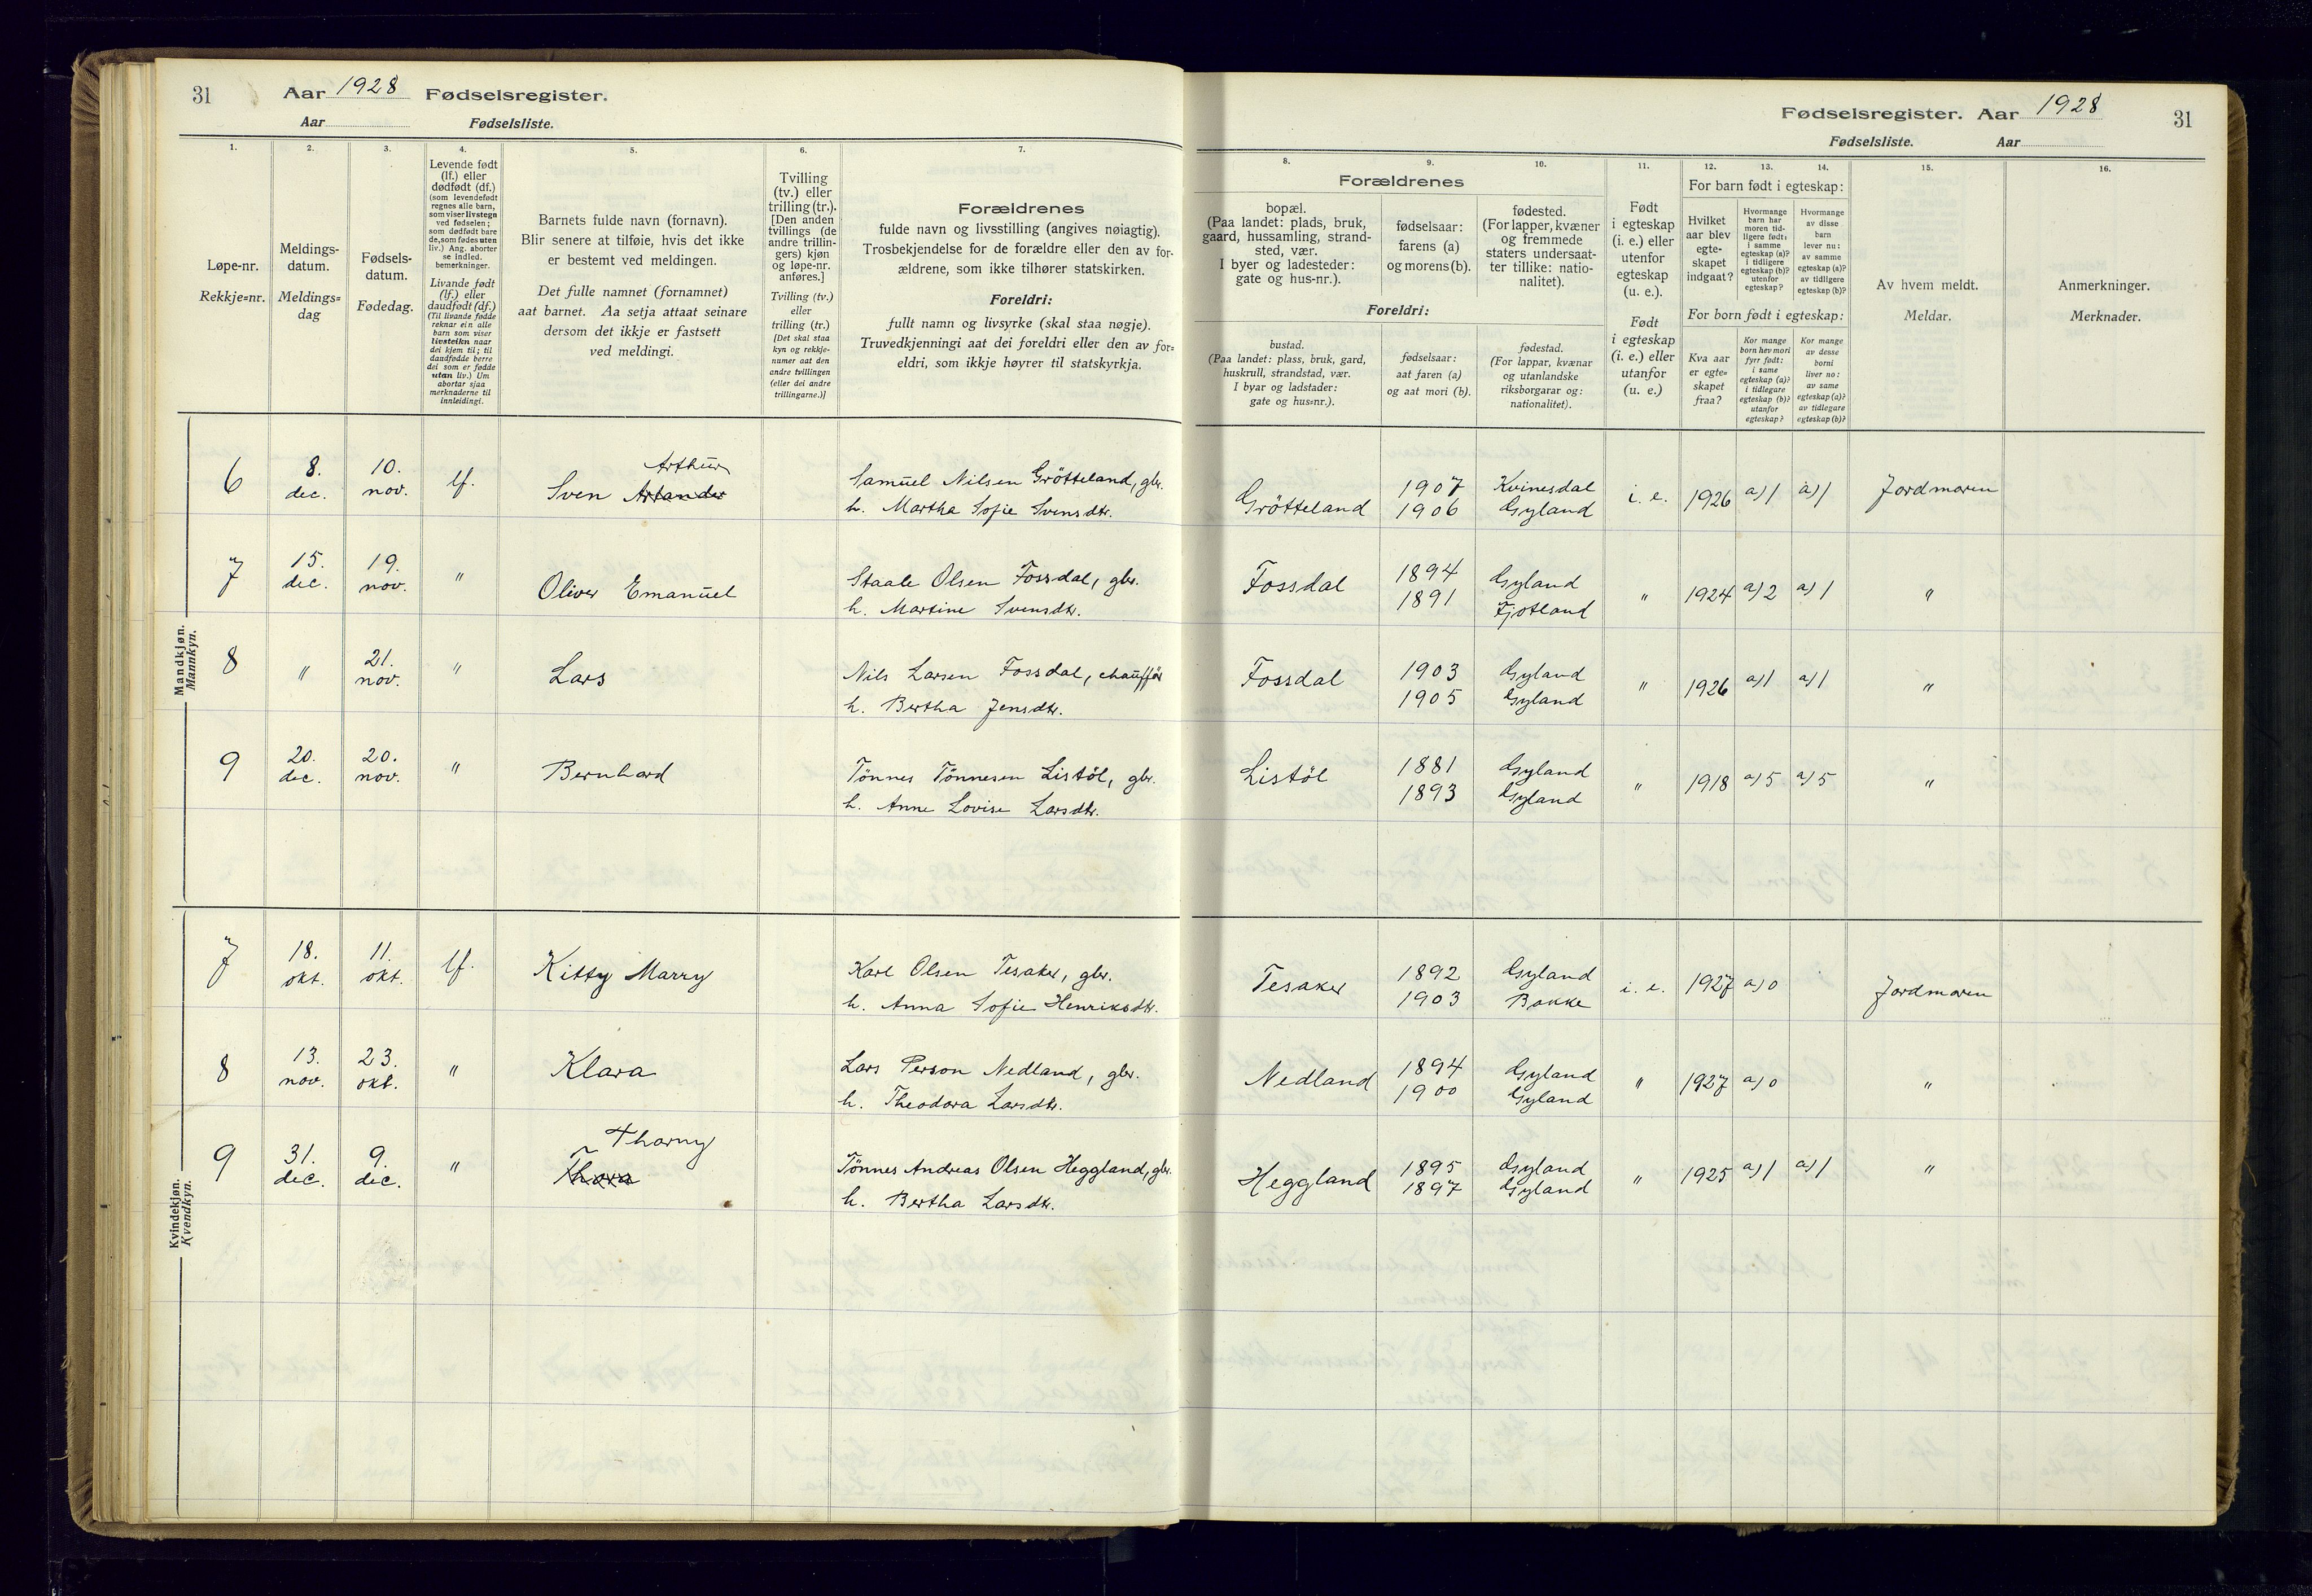 31
Aar 1928 Fødselsregister.
Aar Fødselsliste.
Fødselsregister. Aar 1928
31
Fødselsliste. Aar
1.
Løpe-nr.
Rekkje=nr.
2.
Meldings-
datum.
Meldings=
dag
3.
Fødsels-
datum.
Fødedag.
4.
Levende født
(lf.) eller
dødfødt (df.)
(som levendefødt
regnes alle barn,
som viser livstegn
ved fødselen;
som dødfødt bare
de, som fødes uten
liv.) Ang. aborter
se indled.
bemerkninger.
Livande født
(lf.) eller
daudfødt (df.)
(Til livande fødde
reknar ein alle
born som viser
livsteikn naar
dei kjem til; til
daudfødde berre
dei som er fødde
utan liv.) Um
abortar sjaa
merknaderne til
innleidingi.
5.
Barnets fulde navn (fornavn).
Blir senere at tilføie, hvis det ikke
er bestemt ved meldingen.
Det fulle namnet (fornamnet)
aat barnet. Aa setja attaat seinare
dersom det ikkje er fastsett
ved meldingi.
6.
Tvilling
(tv.) eller
trilling (tr.).
[Den anden
tvillings (de
andre trillin-
gers) kjøn
og løpe-nr.
anføres.]
Tvilling (tv.)
eller
trilling (tr.)
[Det skal staa
kyn og rekkje-
numer aat den
andre tvillingen
(eller dei andre
trillingarne.)]
7.
Forældrenes
fulde navn og livsstilling (angives nøiagtig).
Trosbekjendelse for de forældre eller den av for-
ældrene, som ikke tilhører statskirken.
Foreldri:
fullt namn og livsyrke (skal staa nøgje).
Truvedkjenningi aat dei foreldri eller den av for=
eldri, som ikkje høyrer til statskyrkja.
8.
Forældrenes
bopæl.
(Paa landet: plads, bruk,
gaard, hussamling, strand-
sted, vær.
I byer og ladesteder:
gate og hus-nr.).
Foreldri:
bustad.
(Paa landet: plass, bruk, gard,
huskrull, strandstad, vær.
I byar og ladstader:
gate og hus=nr.).
9.
fødselsaar:
farens (a)
og morens (b).
fødselsaar:
aat faren (a)
og aat mori (b).
10.
fødested.
(For lapper, kvæner
og fremmede
staters undersaat-
ter tillike: natio-
nalitet).
fødestad.
(For lappar, kvænar
og utanlandske
riksborgarar og:
nationalitet).
11.
Født
i egteskap
(i. e.) eller
utenfor
egteskap
(u. e.).
Født
i egteskap
(i. e.) eller
utanfor
(u. e.)
12.
13.
14.
For barn født i egteskap:
Hvilket
aar blev
egte-
skapet
indgaat?
Hvormange
barn har
moren tid-
ligere født:
i samme
egteskap (a)?
i tidligere
egteskap (b)?
utenfor
egteskap?
Hvormange
av disse
barn
lever nu:
av samme
egteskap (a)?
av tidligere
egteskap (b)?
For born født i egteskap:
Kva aar
er egte=
skapet
fraa?
Kor mange
born hev mori
fyrr født:
i same
egteskap (a)?
i tidlegare
egteskap (b)?
utanfor
egteskap?
Kor mange
av desse
borni
liver no:
av same
egteskap (a)?
av tidlegare
egteskap (b)?
15.
Av hvem meldt.
Meldar.
16.
Anmerkninger.
Merknader.
Mandkjøn.
Mannkyn.
Arthur
6 8. dec. 10. nov. lf. Sven Arlander Samuel Nilsen Grötteland, gbr. Grötteland 1907 Kvinesdal i. e. 1926 a)1 a)1 Jordmoren
h. Martha Sofie Svensdtr. 1906 Gyland
7 15. dec. 19. nov. " Oliver Emanuel Staale Olsen Fossdal, gbr. Fossdal 1894 Gyland " 1924 a)2 a)1 "
h. Martine Svensdtr. 1891 Fjotland
8 " 21. nov. " Lars Nils Larsen Fossdal, chaufför Fossdal 1903 Gyland " 1926 a)1 a)1 "
h. Bertha Jensdtr. 1905 Gyland
9 20. dec. 20. nov. " Bernhard Tönnes Tönnesen Listöl, gbr. Listöl 1881 Gyland " 1918 a)5 a)5 "
h. Anne Lovise Larsdtr. 1893 Gyland
Kvindekjøn.
Kvendkyn.
7 18. okt. 11. okt. lf. Kitty Marry Karl Olsen Tesaker, gbr. Tesaker 1892 Gyland i. e. 1927 a)0 Jordmoren
h. Anna Sofie Henriksdtr. 1903 Bakke
8 13. nov. 23. okt. " Klara Lars Person Nedland, gbr. Nedland 1894 Gyland " 1927 a)0 "
h. Theodora Larsdtr. 1900 Gyland
Thorny
9 31. dec. 9. dec. " Thora Tönnes Andreas Olsen Heggland, gbr. Heggland 1895 Gyland " 1925 a)1 a)1 "
h. Bertha Larsdtr. 1897 Gyland